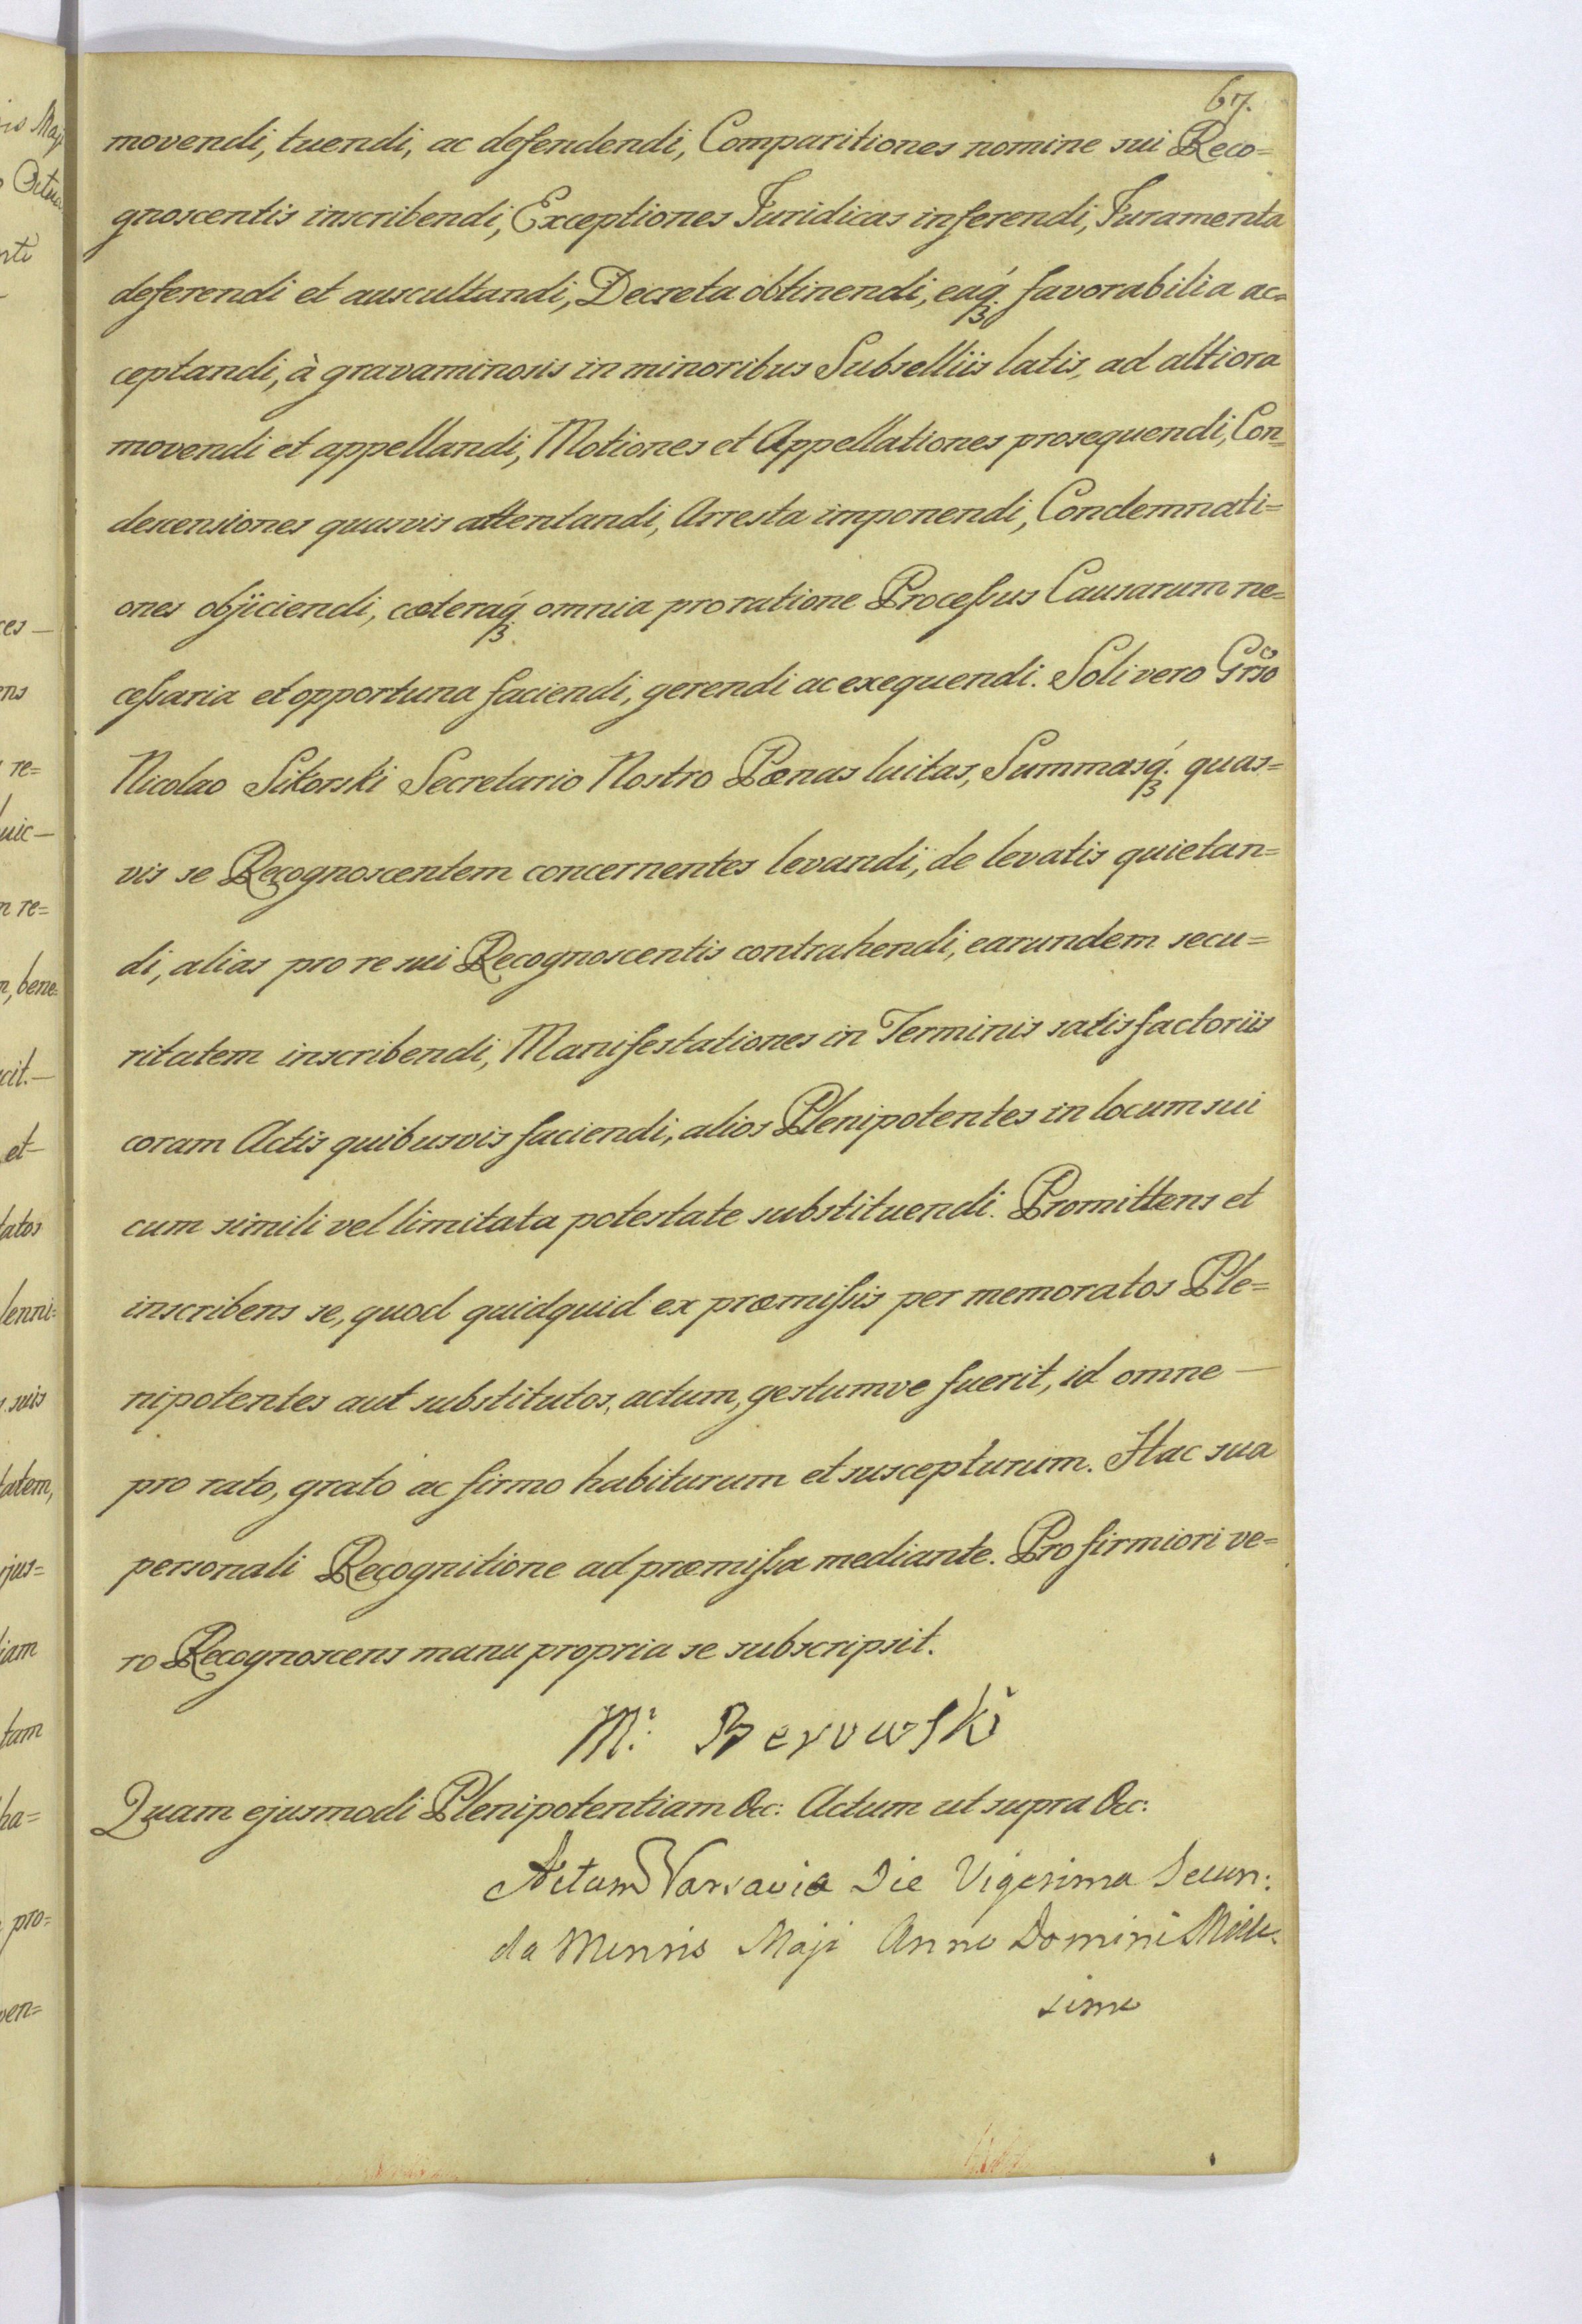 67.
movendi, tuendi, ac defendendi, Comparitiones nomine sui Reco=
gnoscentis inscribendi, Exceptiones Juridicas inferendi, Juramenta
deferendi et auscultandi, Decreta obtinendi, eaq́ꝫ favorabilia ac=
ceptandi, à gravaminosis in minoribus Subselliis latis, ad altiora
movendi et appellandi, Motiones et Appellationes prosequendi, Con=
descensiones quasvis attentandi, Arresta imponendi, Condemnati=
ones objiciendi, cæteraq́ꝫ omnia pro ratione Proceſsus Causarum ne=
ceſsaria et opportuna faciendi, gerendi ac exequendi. Soli vero Grso
Nicolao Sikorski Secretario Nostro Pœnas luitas, Summasq́ꝫ quas=
vis se Recognoscentem concernentes levandi, de levatis quietan=
di, alias pro re sui Recognoscentis contrahendi, earundem secu=
ritatem inscribendi, Manifestationes in Terminis satisfactoriis
coram Actis quibusvis faciendi, alios Plenipotentes in locum sui
cum simili vel limitata potestate substituendi. Promittens et
inscribens se, quod quidquid ex præmiſsis per memoratos Ple=
nipotentes aut substitutos, actum, gestumve fuerit, id omne —
pro rato, grato ac firmo habiturum et suscepturum. Hac sua
personali Recognitione ad præmiſsa mediante. Pro firmiori ve=
ro Recognoscens manu propria se subscripsit.
M: Berowski
Quam ejusmodi Plenipotentiam &c: Actum ut supra &c:
Actum Varsavia Die Vigesima Secun:
da Mensis Maji Anno Domini Mille-
simo